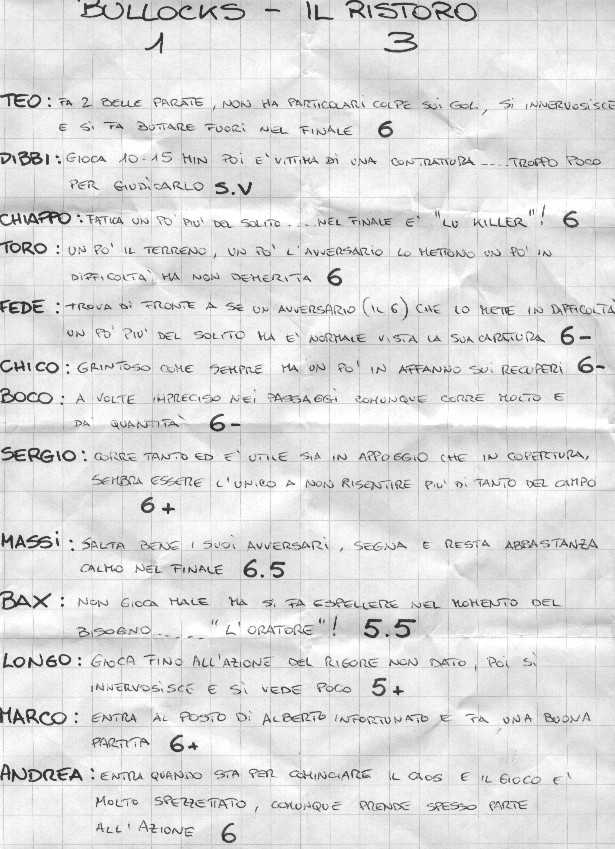 BULLOCKS - IL RISTORO
1 3
TEO: FA 2 BELLE PARATE, NON HA PARTICOLARI COLPE SUI GOL, SI INNERVOSISCE
E SI FA BUTTARE FUORI NEL FINALE 6
DIBBI: GIOCA 10-15 MIN POI E' VITTIMA DI UNA CONTRATTURA.... TROPPO POCO
PER GIUDICARLO S.V
CHIAPPO: FATICA UN PO' PIU' DEL SOLITO... NEL FINALE E' "LU KILLER"! 6
TORO: UN PO' IL TERRENO, UN PO' L'AVVERSARIO LO METTONO UN PO' IN
DIFFICOLTA' MA NON DEMERITA 6
FEDE: TROVA DI FRONTE A SE UN AVVERSARIO (IL 6) CHE LO METE IN DIFFICOLTA'
UN PO' PIU' DEL SOLITO MA E' NORMALE VISTA LA SUA CARATURA 6-
CHICO: GRINTOSO COME SEMPRE MA UN PO' IN AFFANNO SUI RECUPERI 6-
BOCO: A VOLTE IMPRECISO NEI PASSAGGI COMUNQUE CORRE MOLTO E
DA' QUANTITA' 6-
SERGIO: CORRE TANTO ED E' UTILE SIA IN APPOGGIO CHE IN COPERTURA,
SEMBRA ESSERE L'UNICO A NON RISENTIRE PIU' DI TANTO DEL CAMPO
6+
MASSI: SALTA BENE I SUOI AVVERSARI, SEGNA E RESTA ABBASTANZA
CALMO NEL FINALE 6.5
BAX: NON GIOCA MALE MA SI FA ESPELLERE NEL MOMENTO DEL
BISOGNO..... "L'ORATORE"! 5.5
LONGO: GIOCA FINO ALL'AZIONE DEL RIGORE NON DATO, POI SI
INNERVOSISCE E SI VEDE POCO 5+
MARCO: ENTRA AL POSTO DI ALBERTO INFORTUNATO E FA UNA BUONA
PARTITA 6+
ANDREA: ENTRA QUANDO STA PER COMINCIARE IL CAOS E IL GIOCO E'
MOLTO SPEZZETTATO, COMUNQUE PRENDE SPESSO PARTE
ALL'AZIONE 6